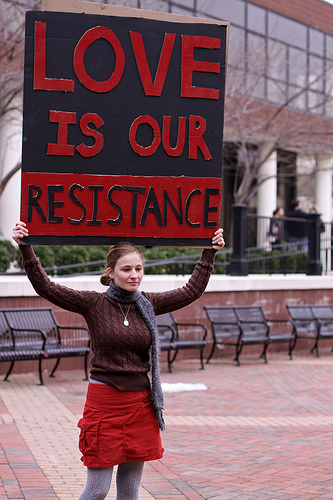 LOVE
IS OUR
RESISTANCE